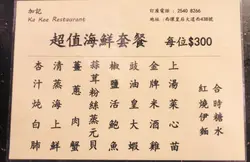 加記
Ka Kee Restaurant
訂座電話: 2540 8266
地址: 西環皇后大道西438號
超值海鮮套餐 每位$300
上湯菜心苗
金牌酒雞
豉皇大蝦
椒鹽鮑魚
蒜茸粉絲蒸元貝
薑蔥肉蟹
清蒸海上鮮
杏汁燉白肺
合時糖水
紅燒伊麵